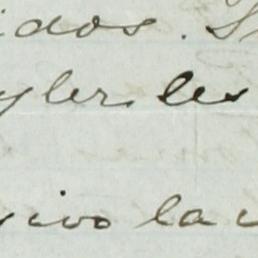 idos. S
yler les
sivo la